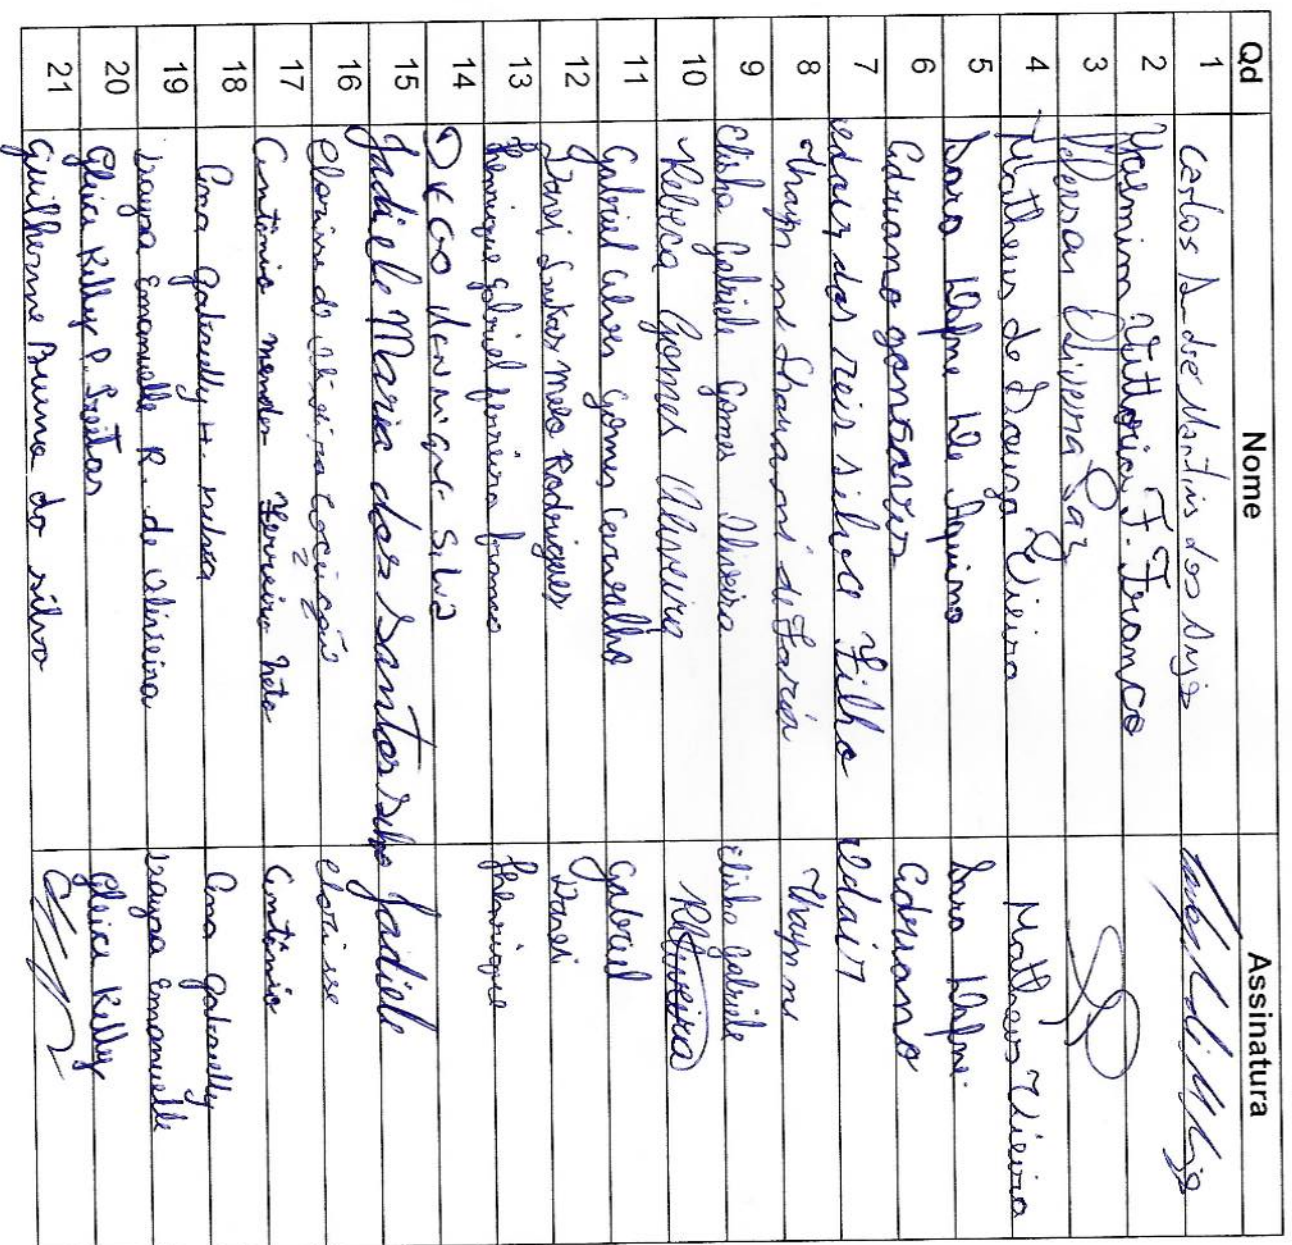 Qd Nome Assinatura
1 Carlos André Martins dos Anjos
2 Yasmim Vittória F. Franco
3 Oliveira
4 Matheus de Souza Vieira Matheus Vieira
5 Sara Dafne de Aquino Sara Dafne.
6 Adriano gonsarves Adriano
7 edair dos reis silva Filho edair
8 de Faria
9 Elisha Gabriele Gomes Oliveira Elisha Gabriele
10 Rebeca Gomes Oliveira ROliveira
11 Gabriel Alves Gomes Carvalho Gabriel
12 Davi Lukas Melo Rodrigues Davi
13 henrique gabriel ferreira franco henrique
14 Silva
15 Jadiele Maria dos Santos Silva Jadiele
16 Clarisse de
17 Antônio mendes Ferreira Neto Antônio
18 Ana gabrielly H. Ana gabrielly
19 Emanuelle R. de Oliveira Emanuelle
20 Gleica Kelly P. Freitas Gleica Kelly
21 Guilherme Bruno da silva